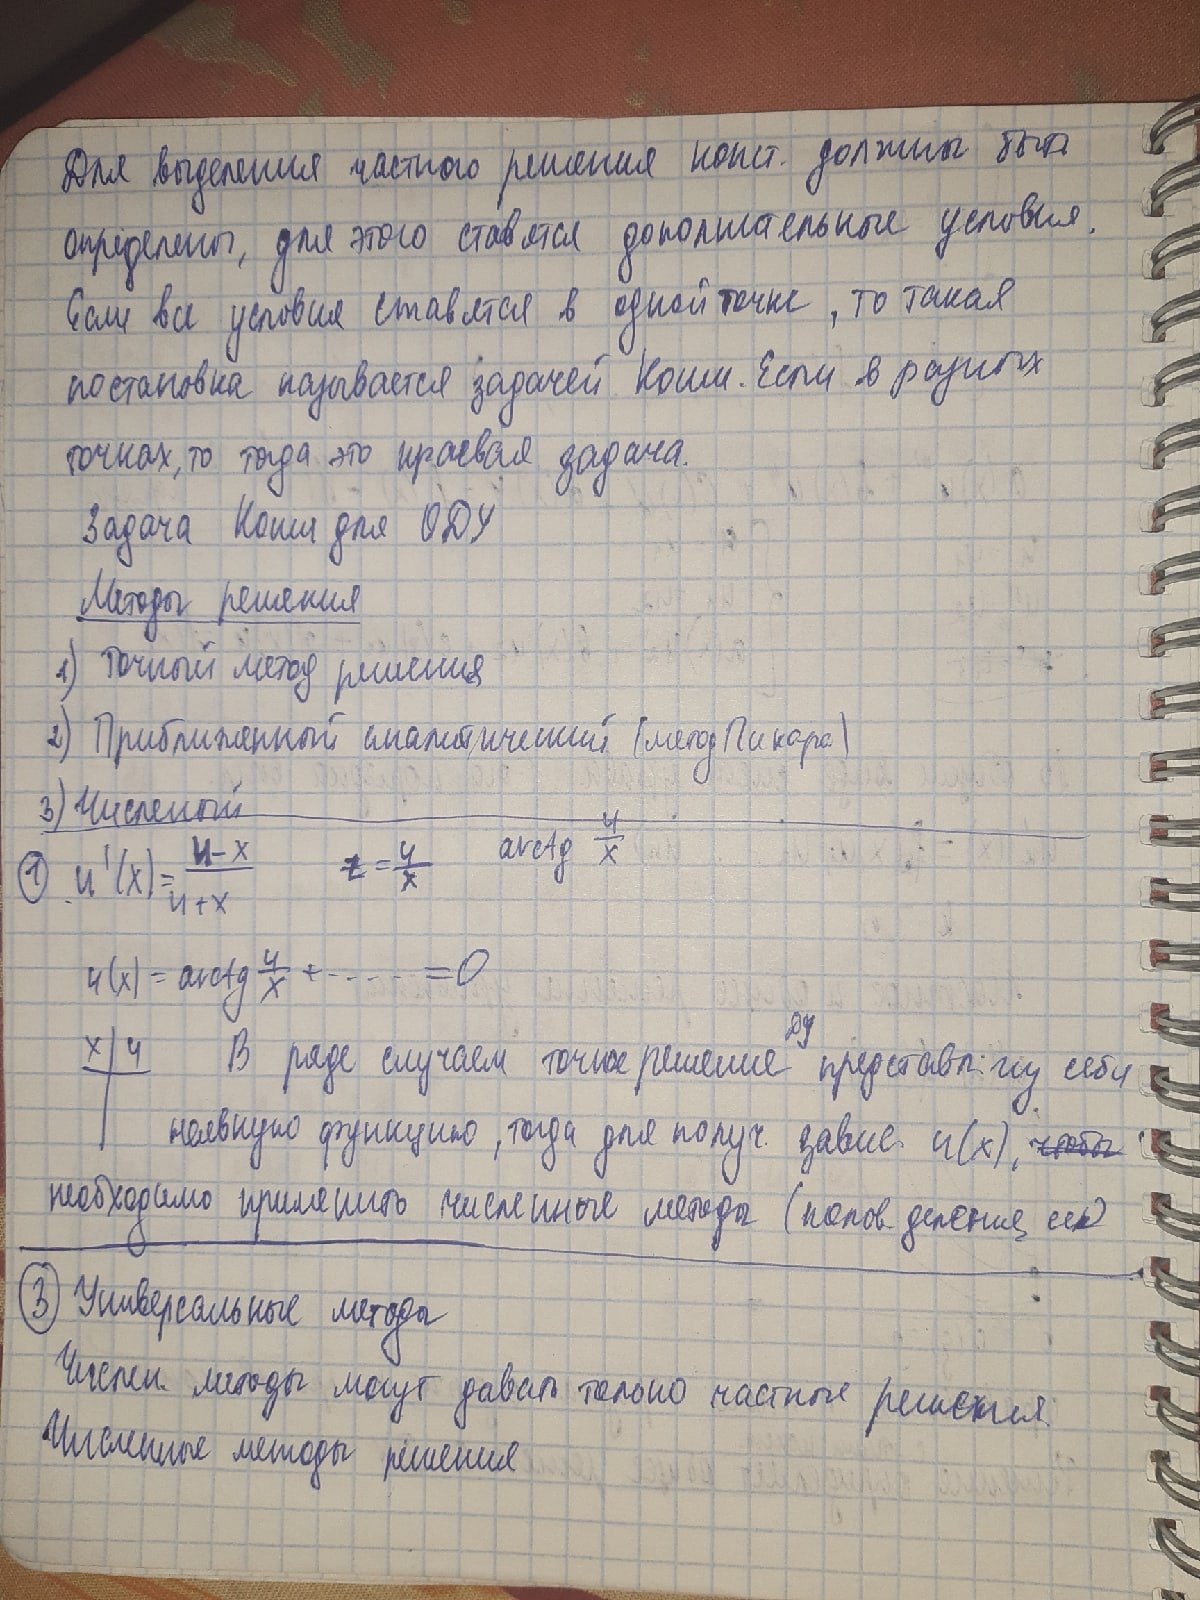 Для выделения частного решения конст. должны быть
определены, для этого ставятся дополнительные условия.
Если все условия ставятся в одной точке, то такая
постановка называется задачей Коши. Если в разных
точках, то тогда это краевая задача.
Задача Коши для ОДУ
Методы решения
1) Точный метод решения
2) Приближенный аналитический (метод Пикара)
3) Численый
① u'(x) = (u-x)/(u+x) z = u/x arctg u/x
u(x) = arctg u/x + ..... = 0
x | u В ряде случаем точное решение ДУ представл. из себя
неявную функцию, тогда для получ. завис. u(x), чтобы
необходимо применить численные методы (полов. деления, сек)
③ Универсальные методы
Числен. методы могут давать только частные решения.
Численные методы решения